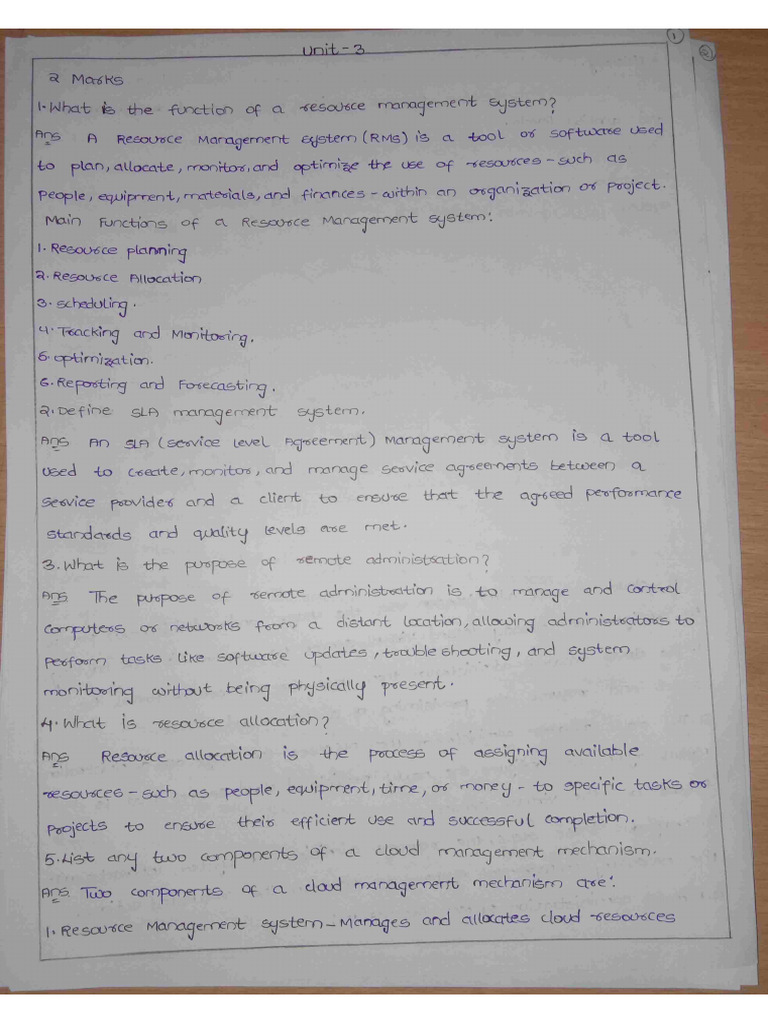 1
2
Unit - 3
2 Marks
1. What is the function of a resource management system?
Ans A Resource Management system (RMS) is a tool or software used
to plan, allocate, monitor, and optimize the use of resources - such as
people, equipment, materials, and finances - within an organization or project.
Main Functions of a Resource Management system:
1. Resource planning
2. Resource Allocation
3. scheduling.
4. Tracking and Monitoring.
5. optimization.
6. Reporting and Forecasting.
2. Define SLA management system.
Ans An SLA (service level Agreement) Management system is a tool
used to create, monitor, and manage service agreements between a
service provider and a client to ensure that the agreed performance
standards and quality levels are met.
3. What is the purpose of remote administration?
Ans The purpose of remote administration is to manage and control
computers or networks from a distant location, allowing administrators to
perform tasks like software updates, trouble shooting, and system
monitoring without being physically present.
4. What is resource allocation?
Ans Resource allocation is the process of assigning available
resources - such as people, equipment, time, or money - to specific tasks or
projects to ensure their efficient use and successful completion.
5. List any two components of a cloud management mechanism.
Ans Two components of a cloud management mechanism are:
1. Resource Management system - Manages and allocates cloud resources